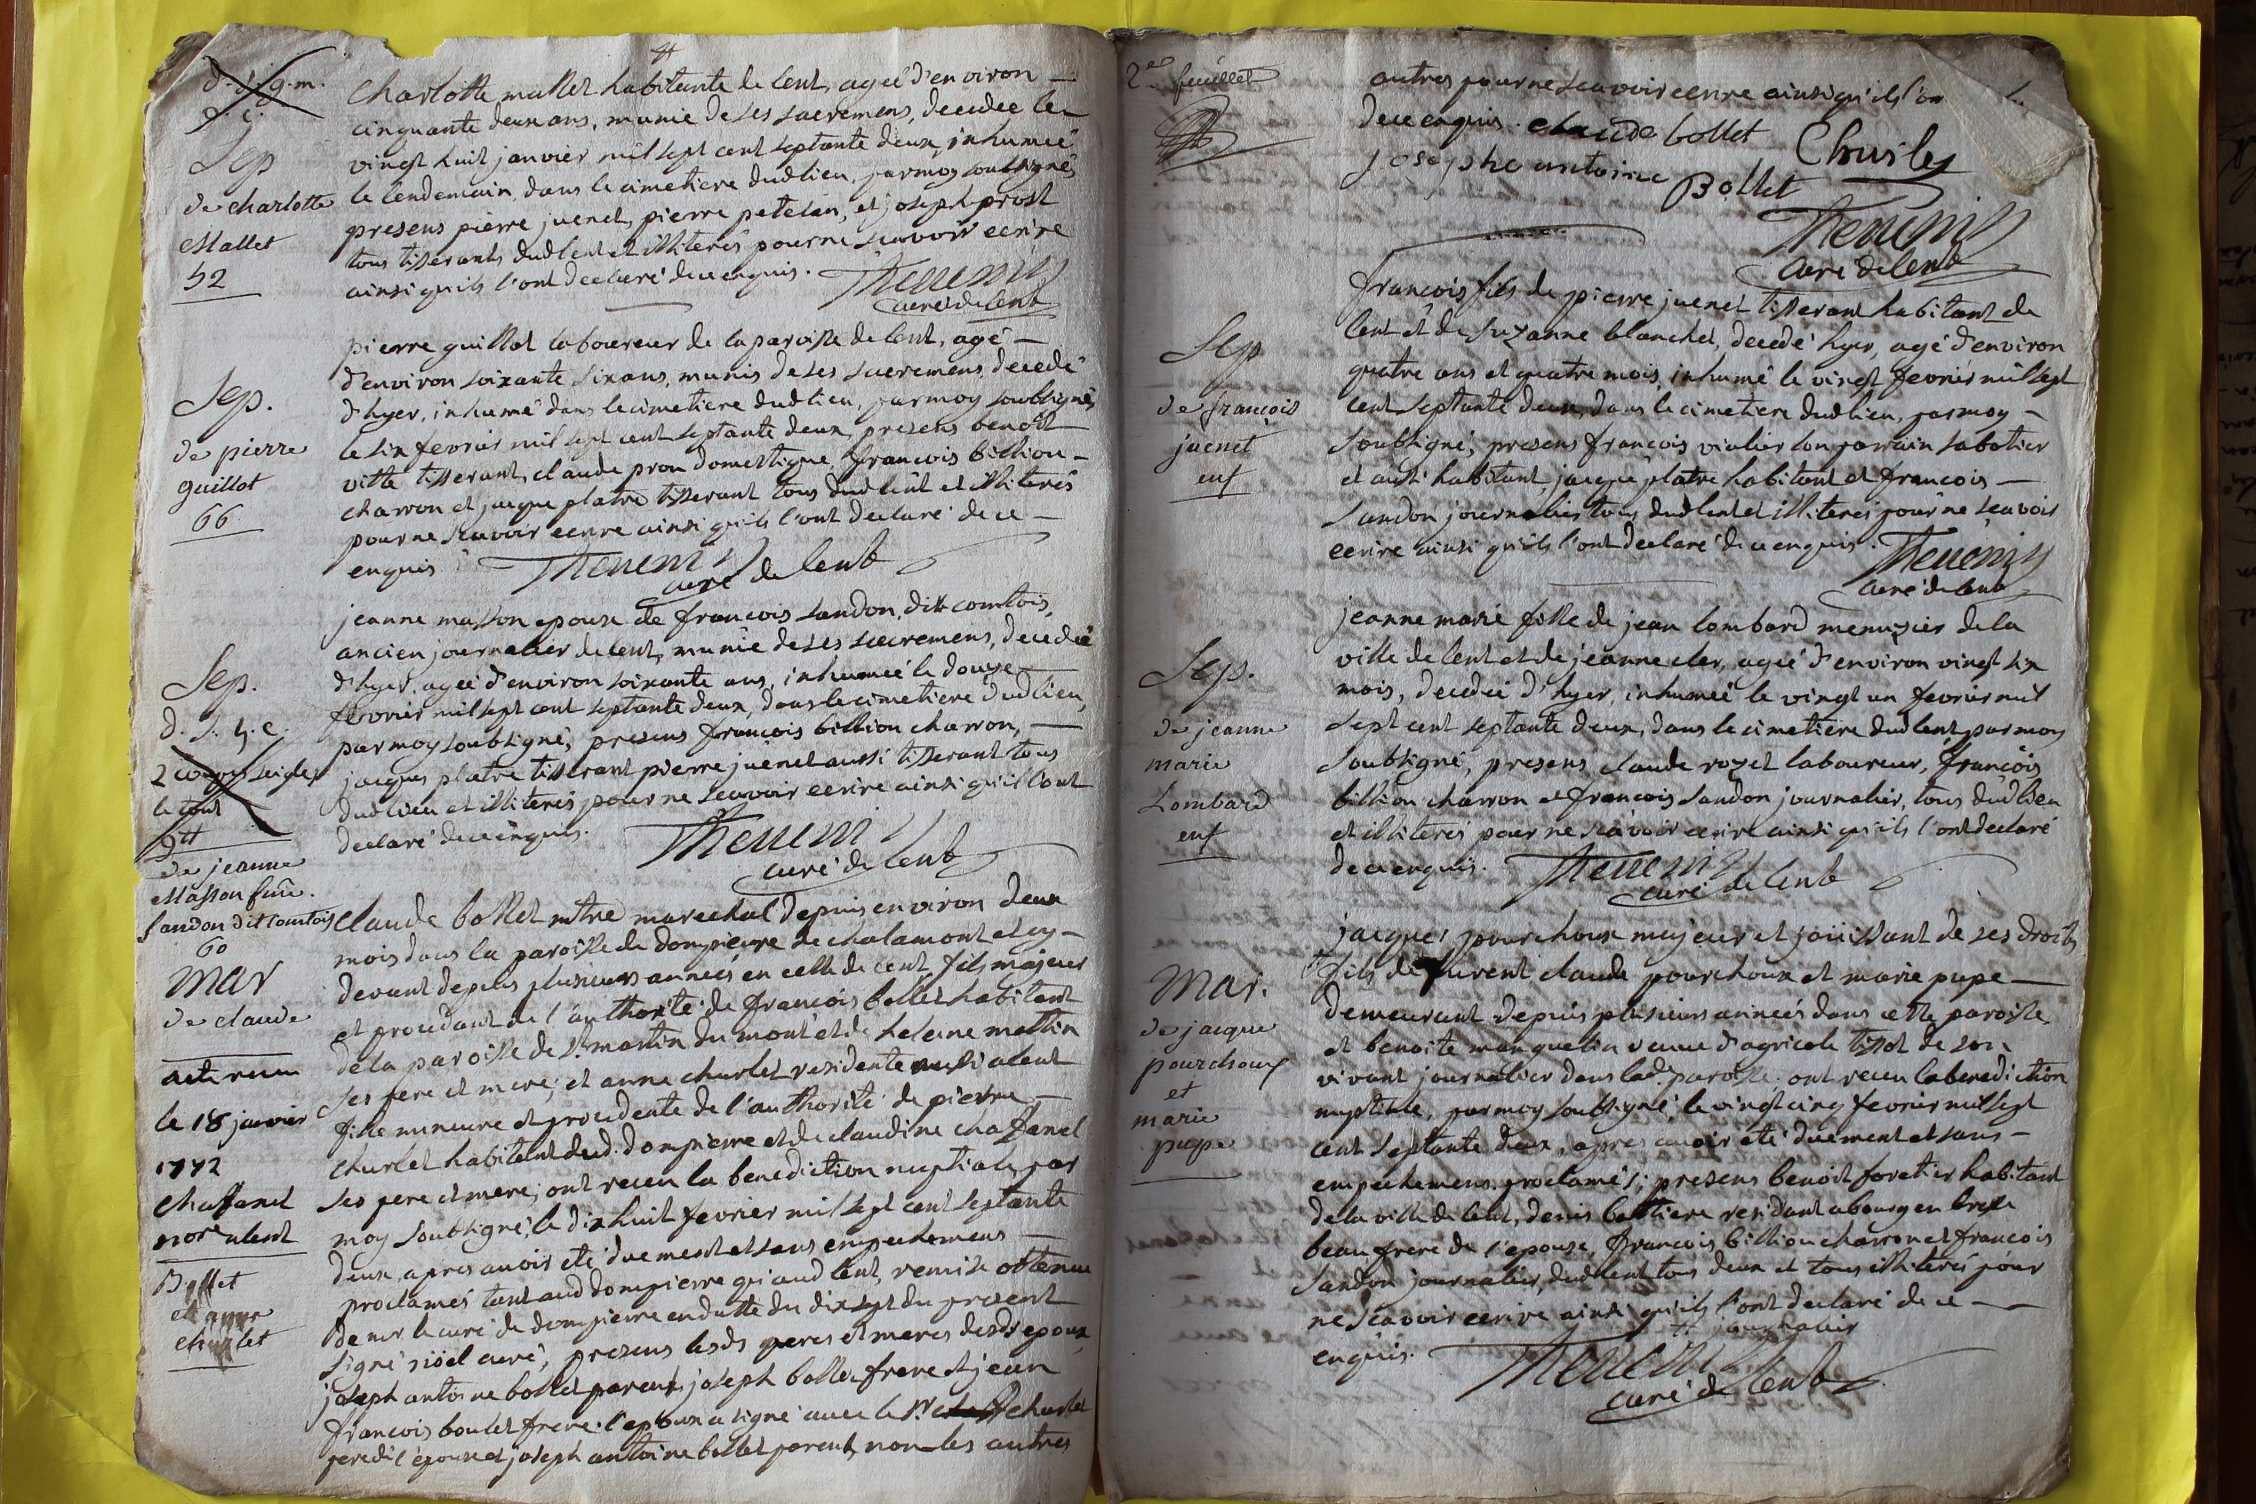 Sep
de charlotte
Mallet
52
charlotte mallet habitante de lent, ageé d'environ
cinquante deux ans, munie de ses sacremens, decedeé le
vingt huit janvier mil sept cent septante deux, inhumeé
le lendemain dans le cimetiere dud lieu, par moy soubsigné,
presens pierre juenet, pierre petelan, et joseph prost
tous tisserants dud lent et illiterés pour ne scavoir ecrire
ainsi qu'ils l'ont declaré de ce enquis.
Thevenin
curé de lent
Sep.
de pierre
guillot
66
pierre guillot laboureur de la paroisse de lent, agé
d'environ soixante six ans, munis de ses sacremens, decedé
d'hyer, inhumé dans le cimetiere dud lieu, par moy soubsigné,
le six fevrier mil sept cent septante deux, presens benoît
vitte tisserant, claude pron domestique, françois billion
charron et jacque platre tisserant tous dud lieu et illiterés
pour ne scavoir ecrire ainsi qu'ils l'ont declaré de ce
enquis
Thevenin
curé de lent
Sep.
le tout
de jeanne
Masson
Sandon dit comtois
60
jeanne masson epouse de françois sandon, dit comtois,
ancien journalier de lent, munie de ses sacremens, decedeé
d'hyer, ageé d'environ soixante ans, inhumeé le douze
fevrier mil sept cent septante deux, dans le cimetiere dud lieu,
par moy soubsigné, presens françois billion charron,
jacques platre tisserant pierre juenet aussi tisserant tous
dud lieu et illiterés pour ne scavoir ecrire ainsi qu'ils l'ont
declaré de ce enquis.
Thevenin
curé de lent
Mar
de claude
acte receu
le 18 janvier
1772
Chaffanel
nore a lent
Bollet
et anne
churlet
claude bollet mtre marechal depuis environ deux
mois dans la paroisse de dompierre de chalamont et cy
devant depuis plusieurs anneés en celle de lent, fils majeur
et procedant de l'authorité de françois bollet habitant
de la paroisse de st martin du mont et de helene mathin
ses pere et mere; et anne churlet residente aussi a lent
fille mineure et procedente de l'authorité de pierre
churlet habitant dud. dompierre et de claudine chaffanel
ses pere et mere; ont receu la benediction nuptiale, par
moy soubsigné, le dix huit fevrier mil sept cent septante
deux, apres avoir eté duement et sans empechemens
proclamés tant aud dompierre qu'aud lent, remise obtenue
de mr. le curé de dompierre en datte du dix sept du present
signé niöel curé, presens lesds peres et meres desds epoux,
joseph antoine bollet parent, joseph bollet frere et jean
françois boulet frere. l'epoux a signé avec le sr churlet
pere de l'epouse et joseph antoine bollet parent, non les autres
2e feuillet
autres pour ne scavoir ecrire ainsi qu'ils l'on
de ce enquis. claude bollet
Churley
josephe antoine
Bollet
Thevenin
curé de lent
Sep
de françois
juenet
enf
françois fils de pierre juenet tisserant habitant de
lent et de suzanne blanchet, decedé hyer, agé d'environ
quatre ans et quatre mois, inhumé le vingt fevrier mil sept
cent septante deux, dans le cimetiere dud lieu, par moy
soubsigné, presens françois vialier son parrain sabotier
et aussi habitant, jacque platre habitant et françois
sandon journalier tous dud lent et illiterés pour ne scavoir
ecrire ainsi qu'ils l'ont declaré de ce enquis.
Thevenin
curé de lent
Sep.
de jeanne
marie
Lombard
enf
jeanne marie fille de jean lombard menuzier de la
ville de lent et de jeanne cler, ageé d'environ vingt six
mois, decedeé d'hyer, inhumeé le vingt un fevrier mil
sept cent septante deux, dans le cimetiere dud lent, par moy
soubsigné, presens claude rozet laboureur, françois
billion charron et françois sandon journalier, tous dud lieu
et illiterés pour ne scavoir ecrire ainsi qu'ils l'ont declaré
de ce enquis.
Thevenin
curé de lent
Mar.
de jacque
pourchoux
et
marie
pupe
jacques pourchoux majeur et joüissant de ses droits
fils de claude pourchoux et marie pupe
demeurant depuis plusieurs anneés dans cette paroisse,
et benoite manquelin veuve d'agricole tissot de son
vivant journalier dans lade paroisse; ont receu la benediction
nuptiale, par moy soubsigné, le vingt cinq fevrier mil sept
cent septante deux, apres avoir eté duement et sans
empechemens proclamés; presens benoit foretier habitant
de la ville de lent, denis residant a bourg en bresse
beau frere de l'epouse, françois billion charron et françois
sandon journalier, dud lent tous deux et tous illiterés pour
ne scavoir ecrire ainsi qu'ils l'ont declaré de ce
enquis.
journalier
Thevenin
curé de lent